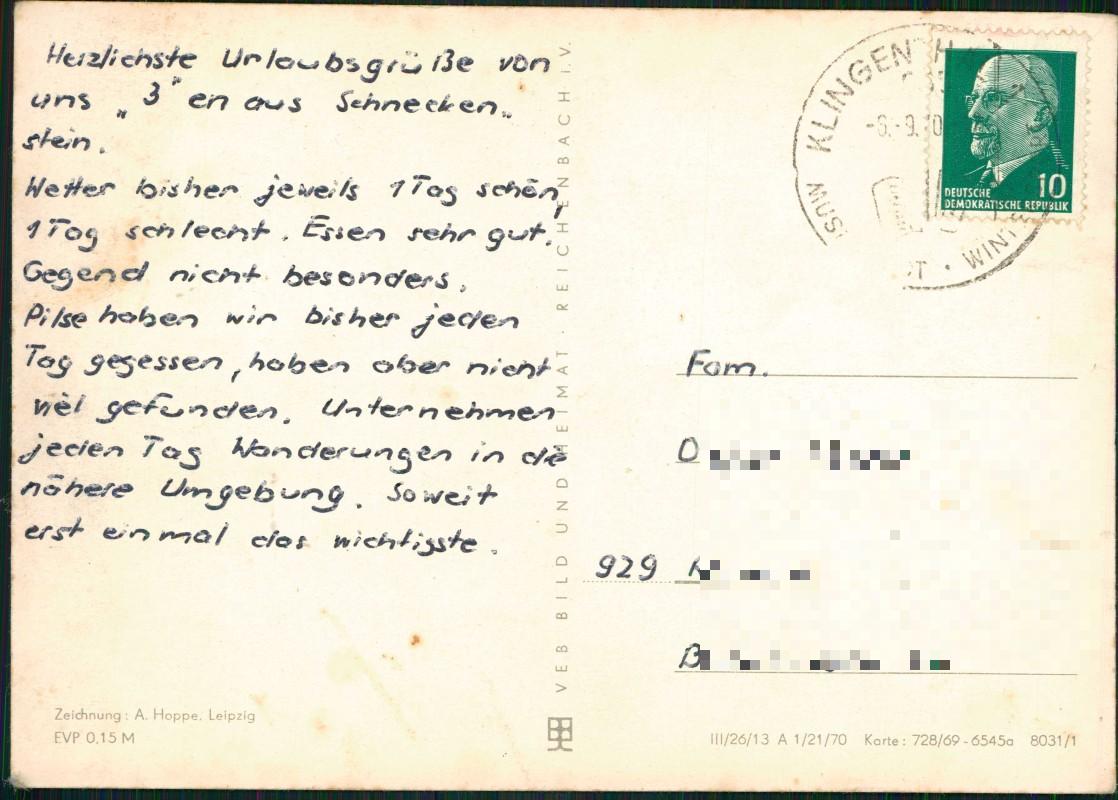 Herzlichste Urlaubsgrüße von
uns „3" en aus Schnecken„
stein.
Wetter bisher jeweils 1 Tag schön,
1 Tag schlecht. Essen sehr gut.
Gegend nicht besonders.
Pilse haben wir bisher jeden
Tag gegessen, haben aber nicht
viel gefunden. Unternehmen
jeden Tag Wanderungen in die
nähere Umgebung. Soweit
erst einmal das wichtigste.
Zeichnung: A. Hoppe, Leipzig
EVP 0,15 M
VEB BILD UND HEIMAT · REICHENBACH I. V.
KLINGENTHAL
-6.-9.70
MUSI
T · WINT
DEUTSCHE
DEMOKRATISCHE REPUBLIK
10
Fam.
929
III/26/13 A 1/21/70 Karte: 728/69-6545a 8031/1